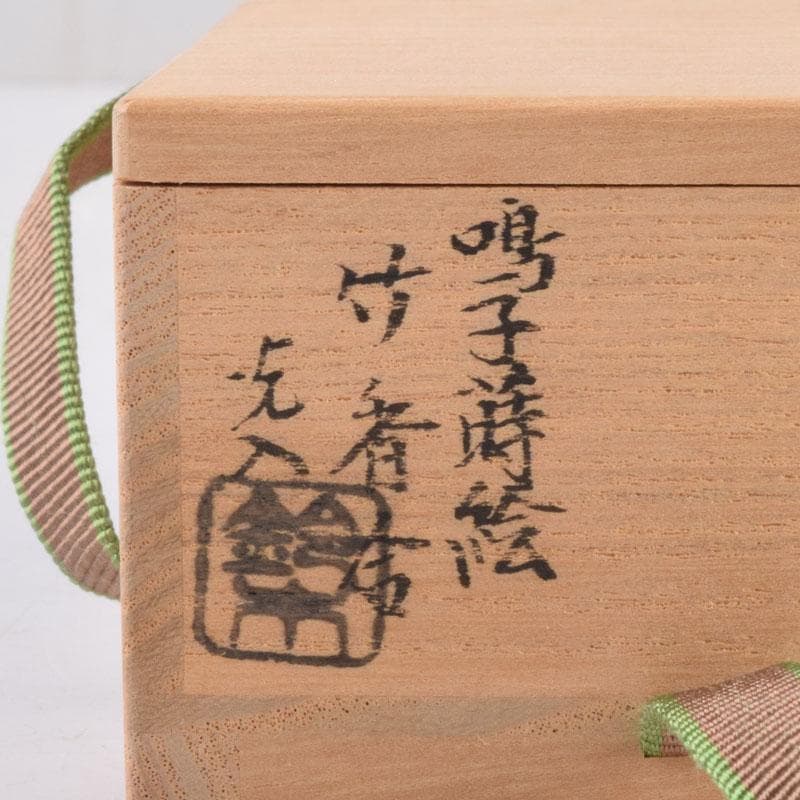 鳴子蒔絵
竹香合
光入